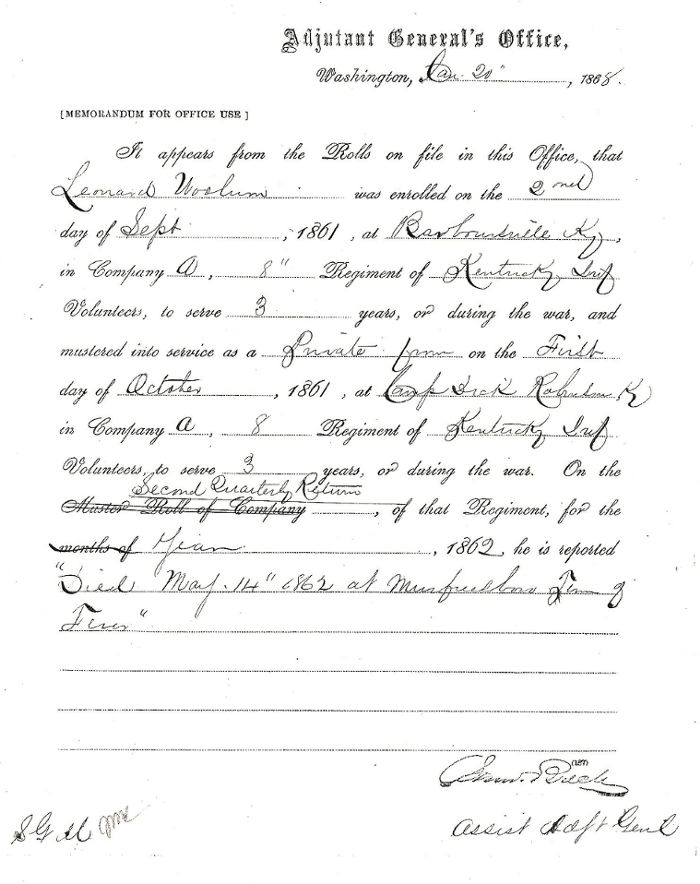 Adjutant General's Office,
Washington, Jan. 20", 1868.
[MEMORANDUM FOR OFFICE USE]
It appears from the Rolls on file in this Office, that
Leonard Woolum was enrolled on the 2nd
day of Sept, 1861, at Barboursville Ky,
in Company A, 8" Regiment of Kentucky Inf
Volunteers, to serve 3 years, or during the war, and
mustered into service as a Private on the First
day of October, 1861, at Camp Dick Robinson K
in Company A, 8 Regiment of Kentucky Inf
Volunteers, to serve 3 years, or during the war. On the
Second Quarterly Return
Muster Roll of Company, of that Regiment, for the
months of Year, 1862, he is reported
"Died May 14" 1862 at Murfreesboro Ten of
Fever"
Breck
Assist Adjt Genl
S G M